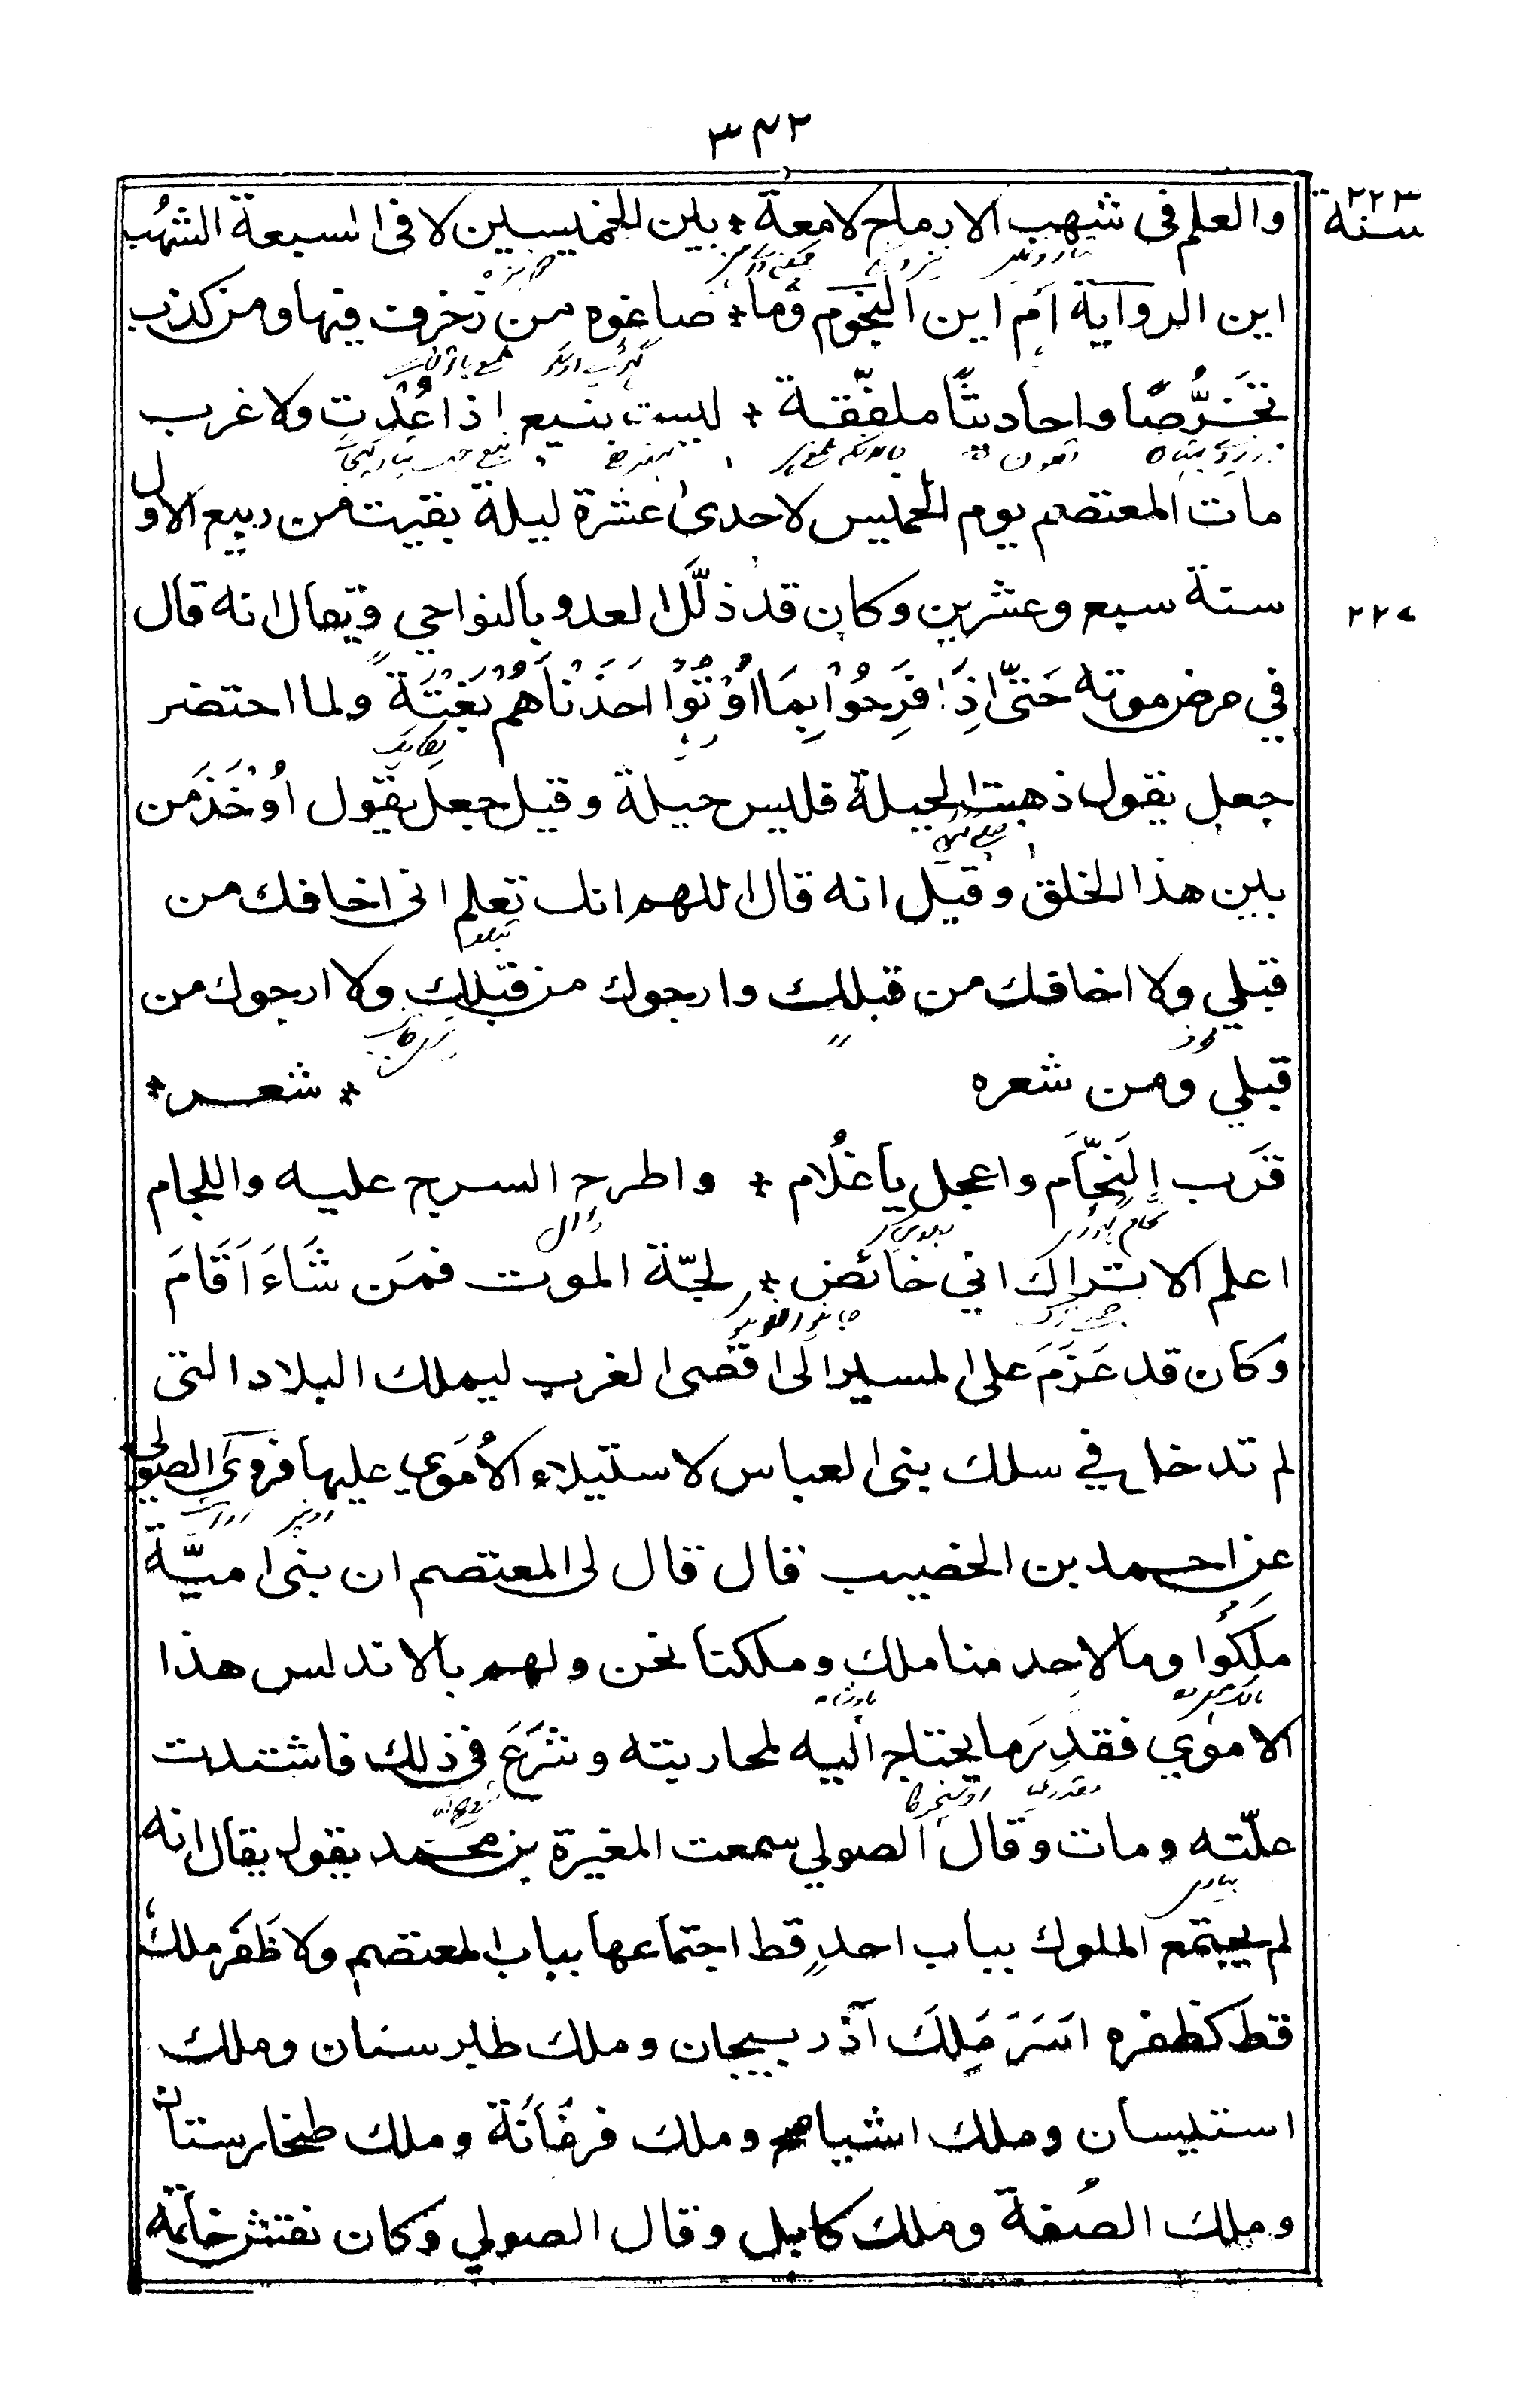 ٣٤٢
سنة ٢٢٣
والعلم فى شهب الارماح لامعة * بين الخميسين لا فى السبعة الشهُب
اين الرواية ام اين النجوم وما * صاغوه من زخرف فيها ومن كذب
تخَرُّصًا واحاديثًا ملفّقة * ليست بنبع اذا عُدّت ولا غرب
مات المعتصم يوم الخميس لاحدى عشرة ليلة بقيت من ربيع الاول
سنة سبع وعشرين وكان قد ذلّل العدو بالنواحي ويقال انه قال
٢٢٧
في مرض موته حَتّٰى اِذَا فَرِحُوْا بِمَا اُوْتُوْا اَخَذْنَاهُمْ بَغْتَةً ولما احتضر
جعل يقول ذهبت الحيلة فليس حيلة وقيل جعل يقول اُوْخَذ من
بين هذا الخلق وقيل انه قال اللهم انك تعلم انى اخافك من
قبلي ولا اخافك من قبلك وارجوك من قبلك ولا ارجوك من
قبلي ومن شعره * شعر *
قَرّب النَحّامَ واعجل يا غُلام * واطرح السرج عليه واللجام
اعلم الاتراكَ اني خائض * لجّة الموت فمَن شَاءَ اَقَامَ
وكان قد عَزَمَ على المسير الى اقصى الغرب ليملك البلاد التى
لم تدخل في سلك بنى العباس لاستيلاء الاُمَوي عليها فروى الصولى
عن احمد بن الخصيب قال قال لى المعتصم ان بنى اميّة
مَلَكُوا وما لاحد منا ملك وملكنا نحن ولهم بالاندلس هذا
الاموي فقدِّر ما يحتاج اليه لمحاربته وشَرَعَ فى ذلك فاشتدت
علّته ومات وقال الصولي سمعت المغيرة بن محمد يقول يقال انه
لم يجتمع الملوك بباب احدٍ قط اجتماعها بباب المعتصم ولا ظَفَر ملكٌ
قط كظفره اَسَرَ مَلِكَ آذربيجان وملك طبرستان وملك
استيسان وملك اشياصح وملك فرغَانَة وملك طخارستان
وملك الصُفة وملك كابل وقال الصولي وكان نقش خاتمه